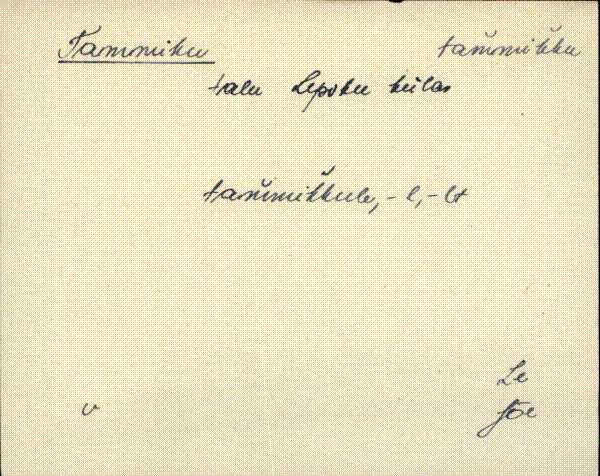 Tammiku tam̆mik̆ku
talu Lepoku külas
tam̆mik̆kule, -l, -lt
Le
Jõe
v